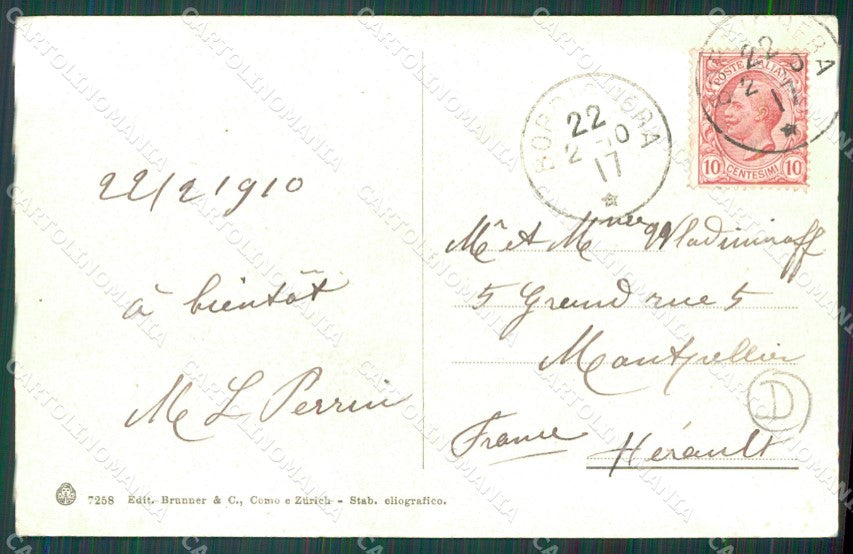 22/2 1910
à bientôt
M L Perrin
BORDIGHERA
22
2 10
17
POSTE ITALIANE
10 CENTESIMI 10
Mr et Mme Wladimiroff
5 Grand rue 5
Montpellier
France Hérault
D
7258 Edit. Brunner & C., Como e Zürich - Stab. eliografico.
CARTOLINOMANIA